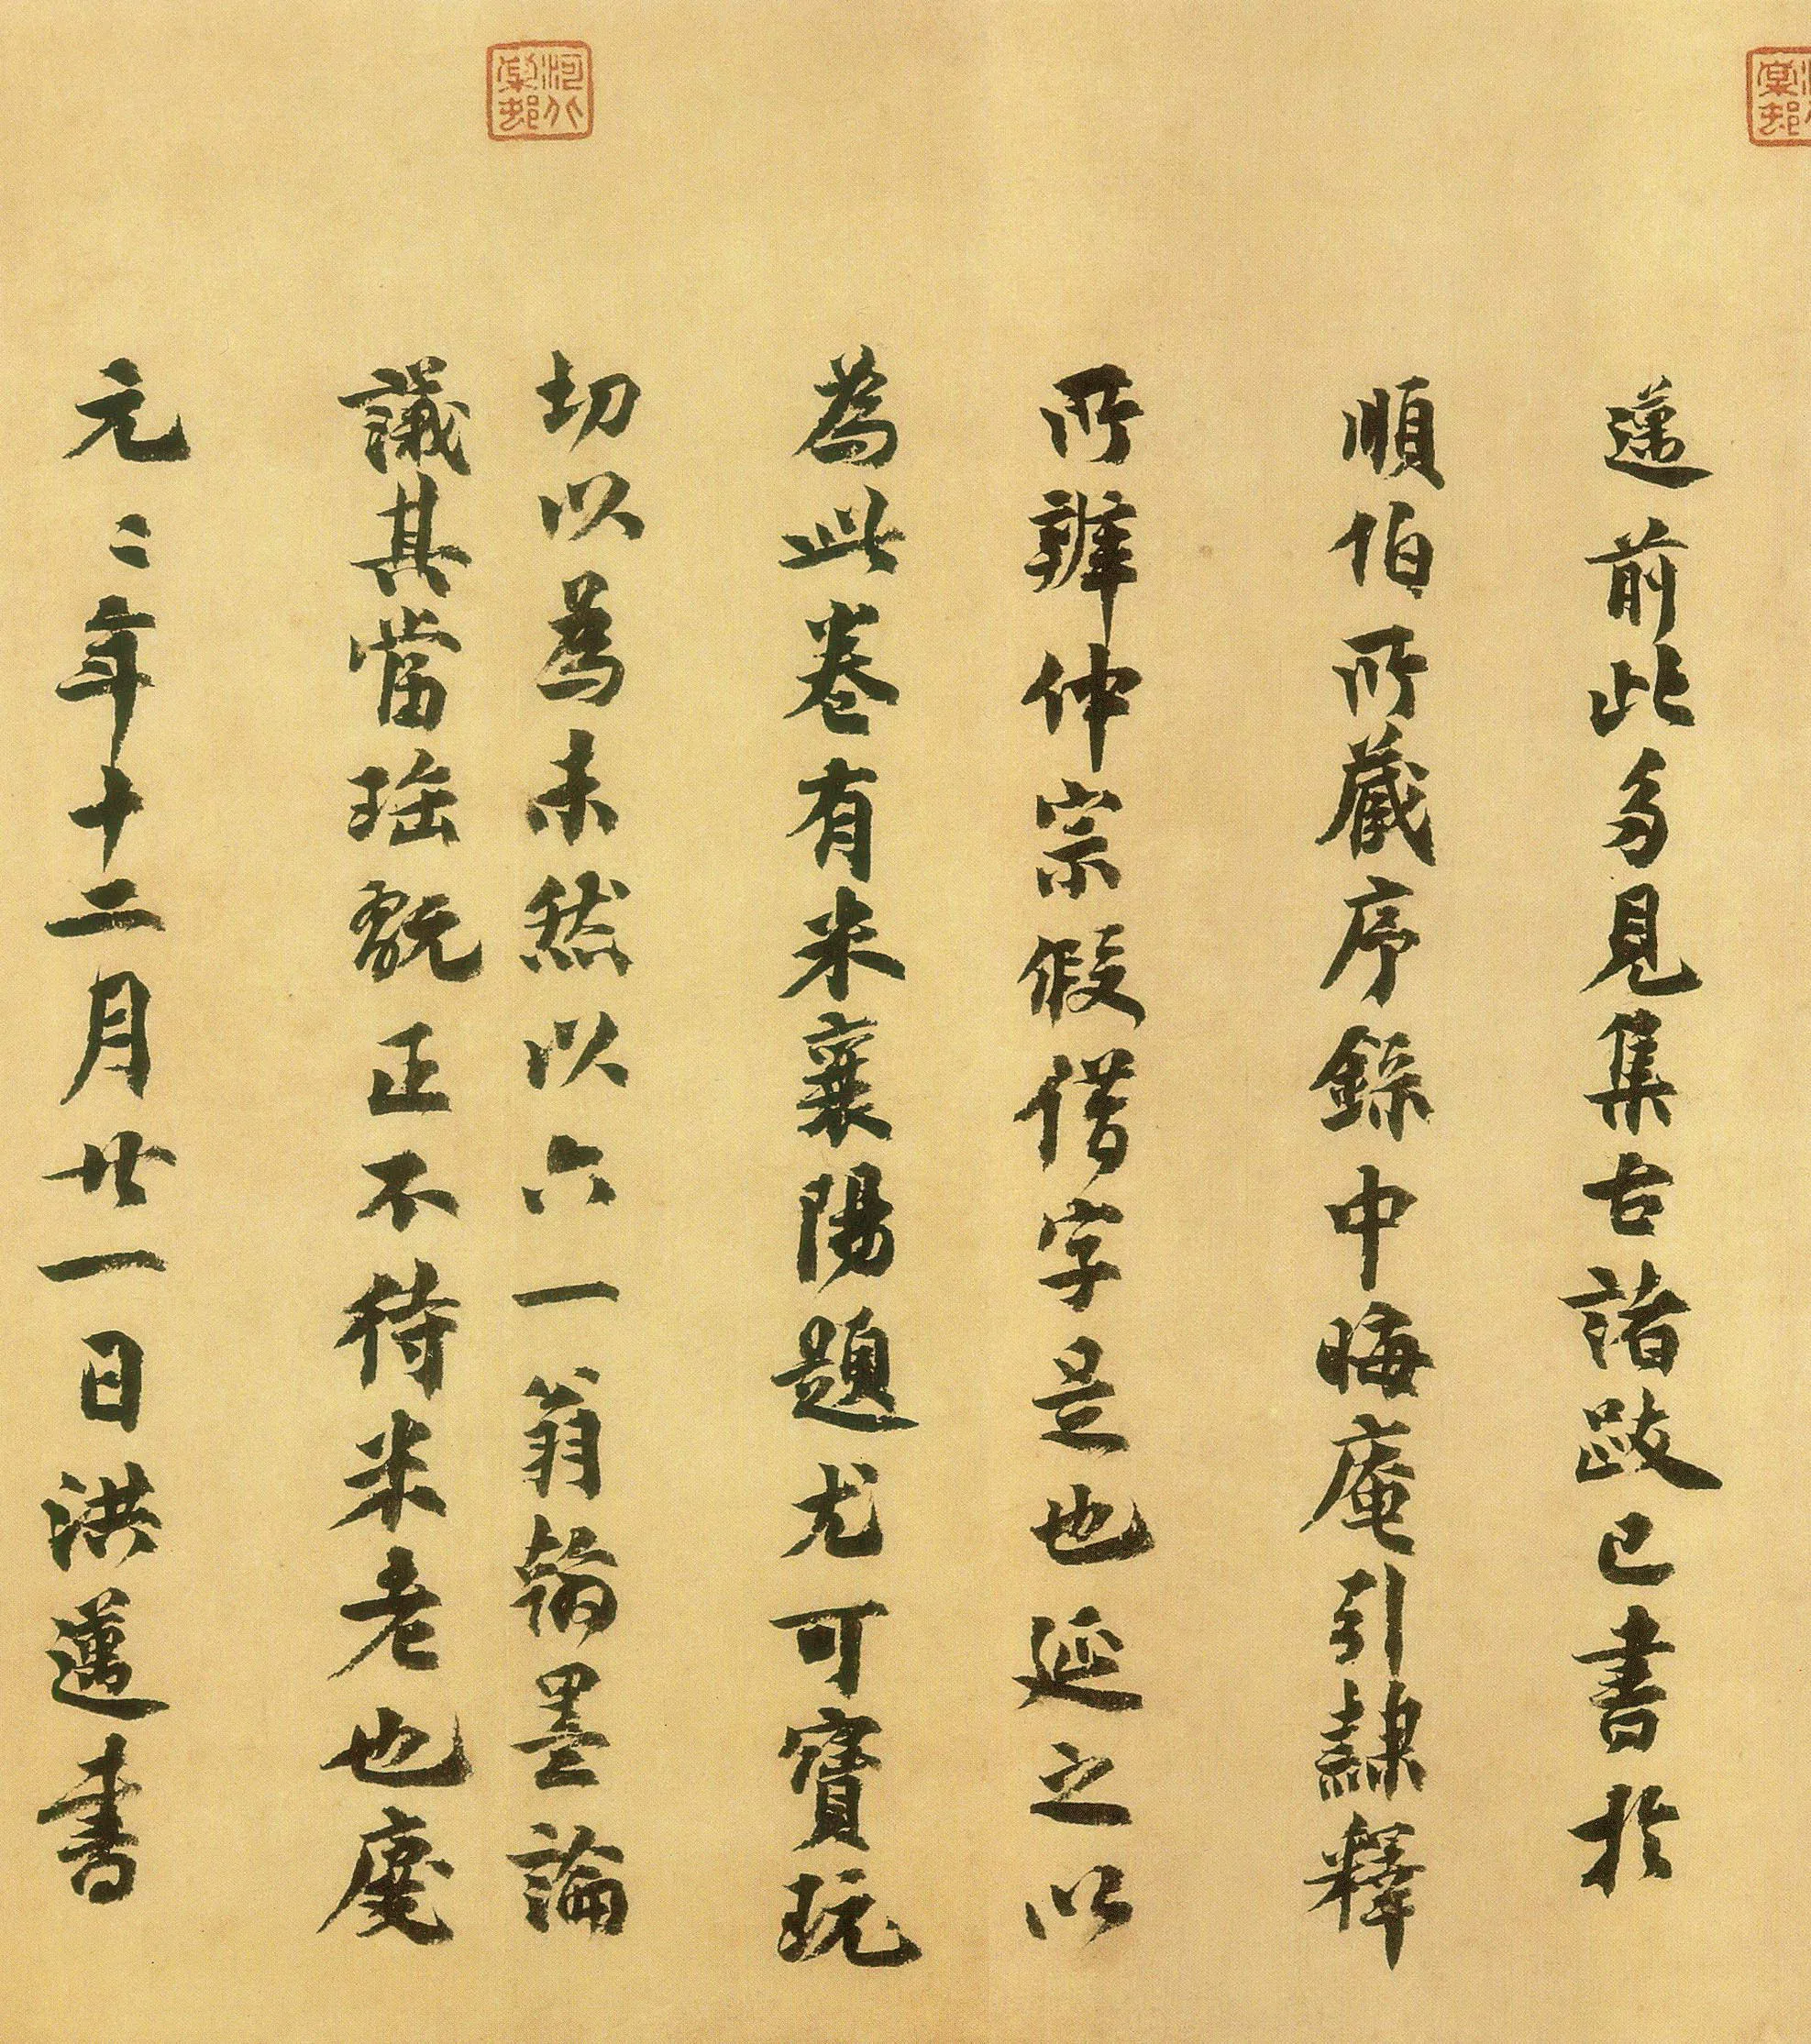 邁前此多見集古諸跋已書於
順伯所藏序錄中晦庵引隸釋
所辨仲宗假借字是也延之以
為此卷有米襄陽題尤可寶玩
切以為未然以六一翁翰墨論
議其當珤翫正不待米老也慶
元〻年十二月廿一日洪邁書
河北棠村